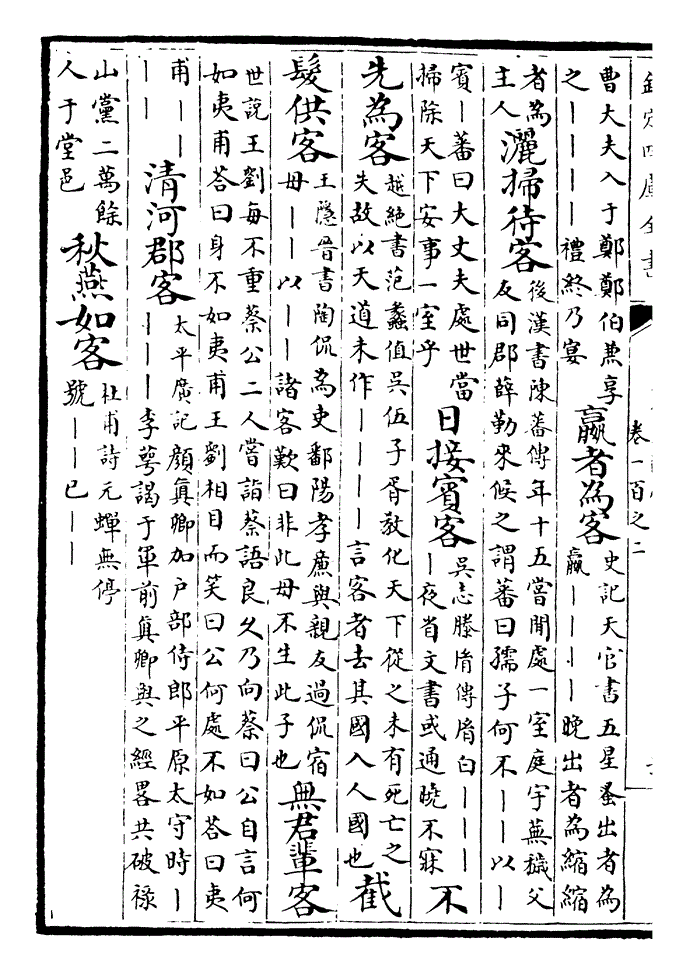 欽定四庫全書
卷一百之二
曹大夫入于鄭鄭伯兼享
之丨丨丨丨禮終乃宴
嬴者為客
史記天官書五星蚤出者為
嬴丨丨丨丨晚出者為縮縮
者為
主人
灑掃待客
後漢書陳蕃傳年十五嘗閒處一室庭宇蕪穢父
友同郡薛勤來候之謂蕃曰孺子何不丨丨以丨
賓丨蕃曰大丈夫處世當
掃除天下安事一室乎
日接賓客
吳志滕胤傳胤白丨丨丨
丨夜省文書或通曉不寐
不
先為客
越絕書范蠡值吳伍子胥教化天下從之未有死亡之
失故以天道未作丨丨丨丨言客者去其國入人國也
截
髮供客
王隱晉書陶侃為吏鄱陽孝廉與親友過侃宿
母丨丨以丨丨諸客歎曰非此母不生此子也
無君輩客
世說王劉每不重蔡公二人嘗詣蔡語良久乃向蔡曰公自言何
如夷甫荅曰身不如夷甫王劉相目而笑曰公何處不如荅曰夷
甫丨丨
丨丨
清河郡客
太平廣記顔真卿加户部侍郎平原太守時丨
丨丨丨李萼謁于軍前真卿與之經畧共破祿
山黨二萬餘
人于堂邑
秋燕如客
杜甫詩元蟬無停
號丨丨已丨丨